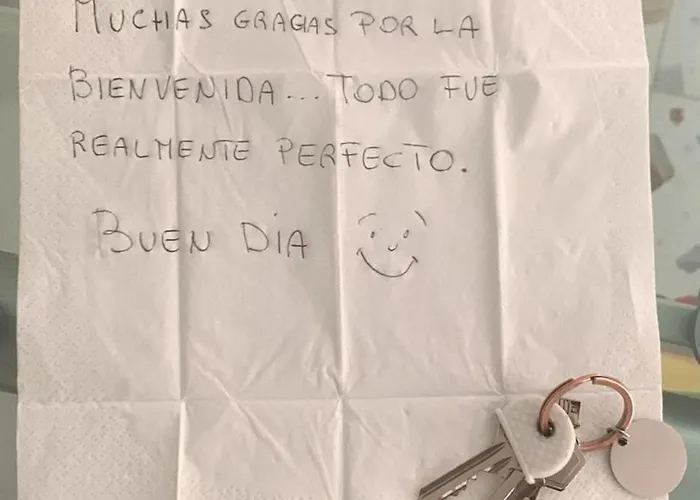 MUCHAS GRACIAS POR LA
BIENVENIDA... TODO FUE
REALMENTE PERFECTO.
BUEN DÍA